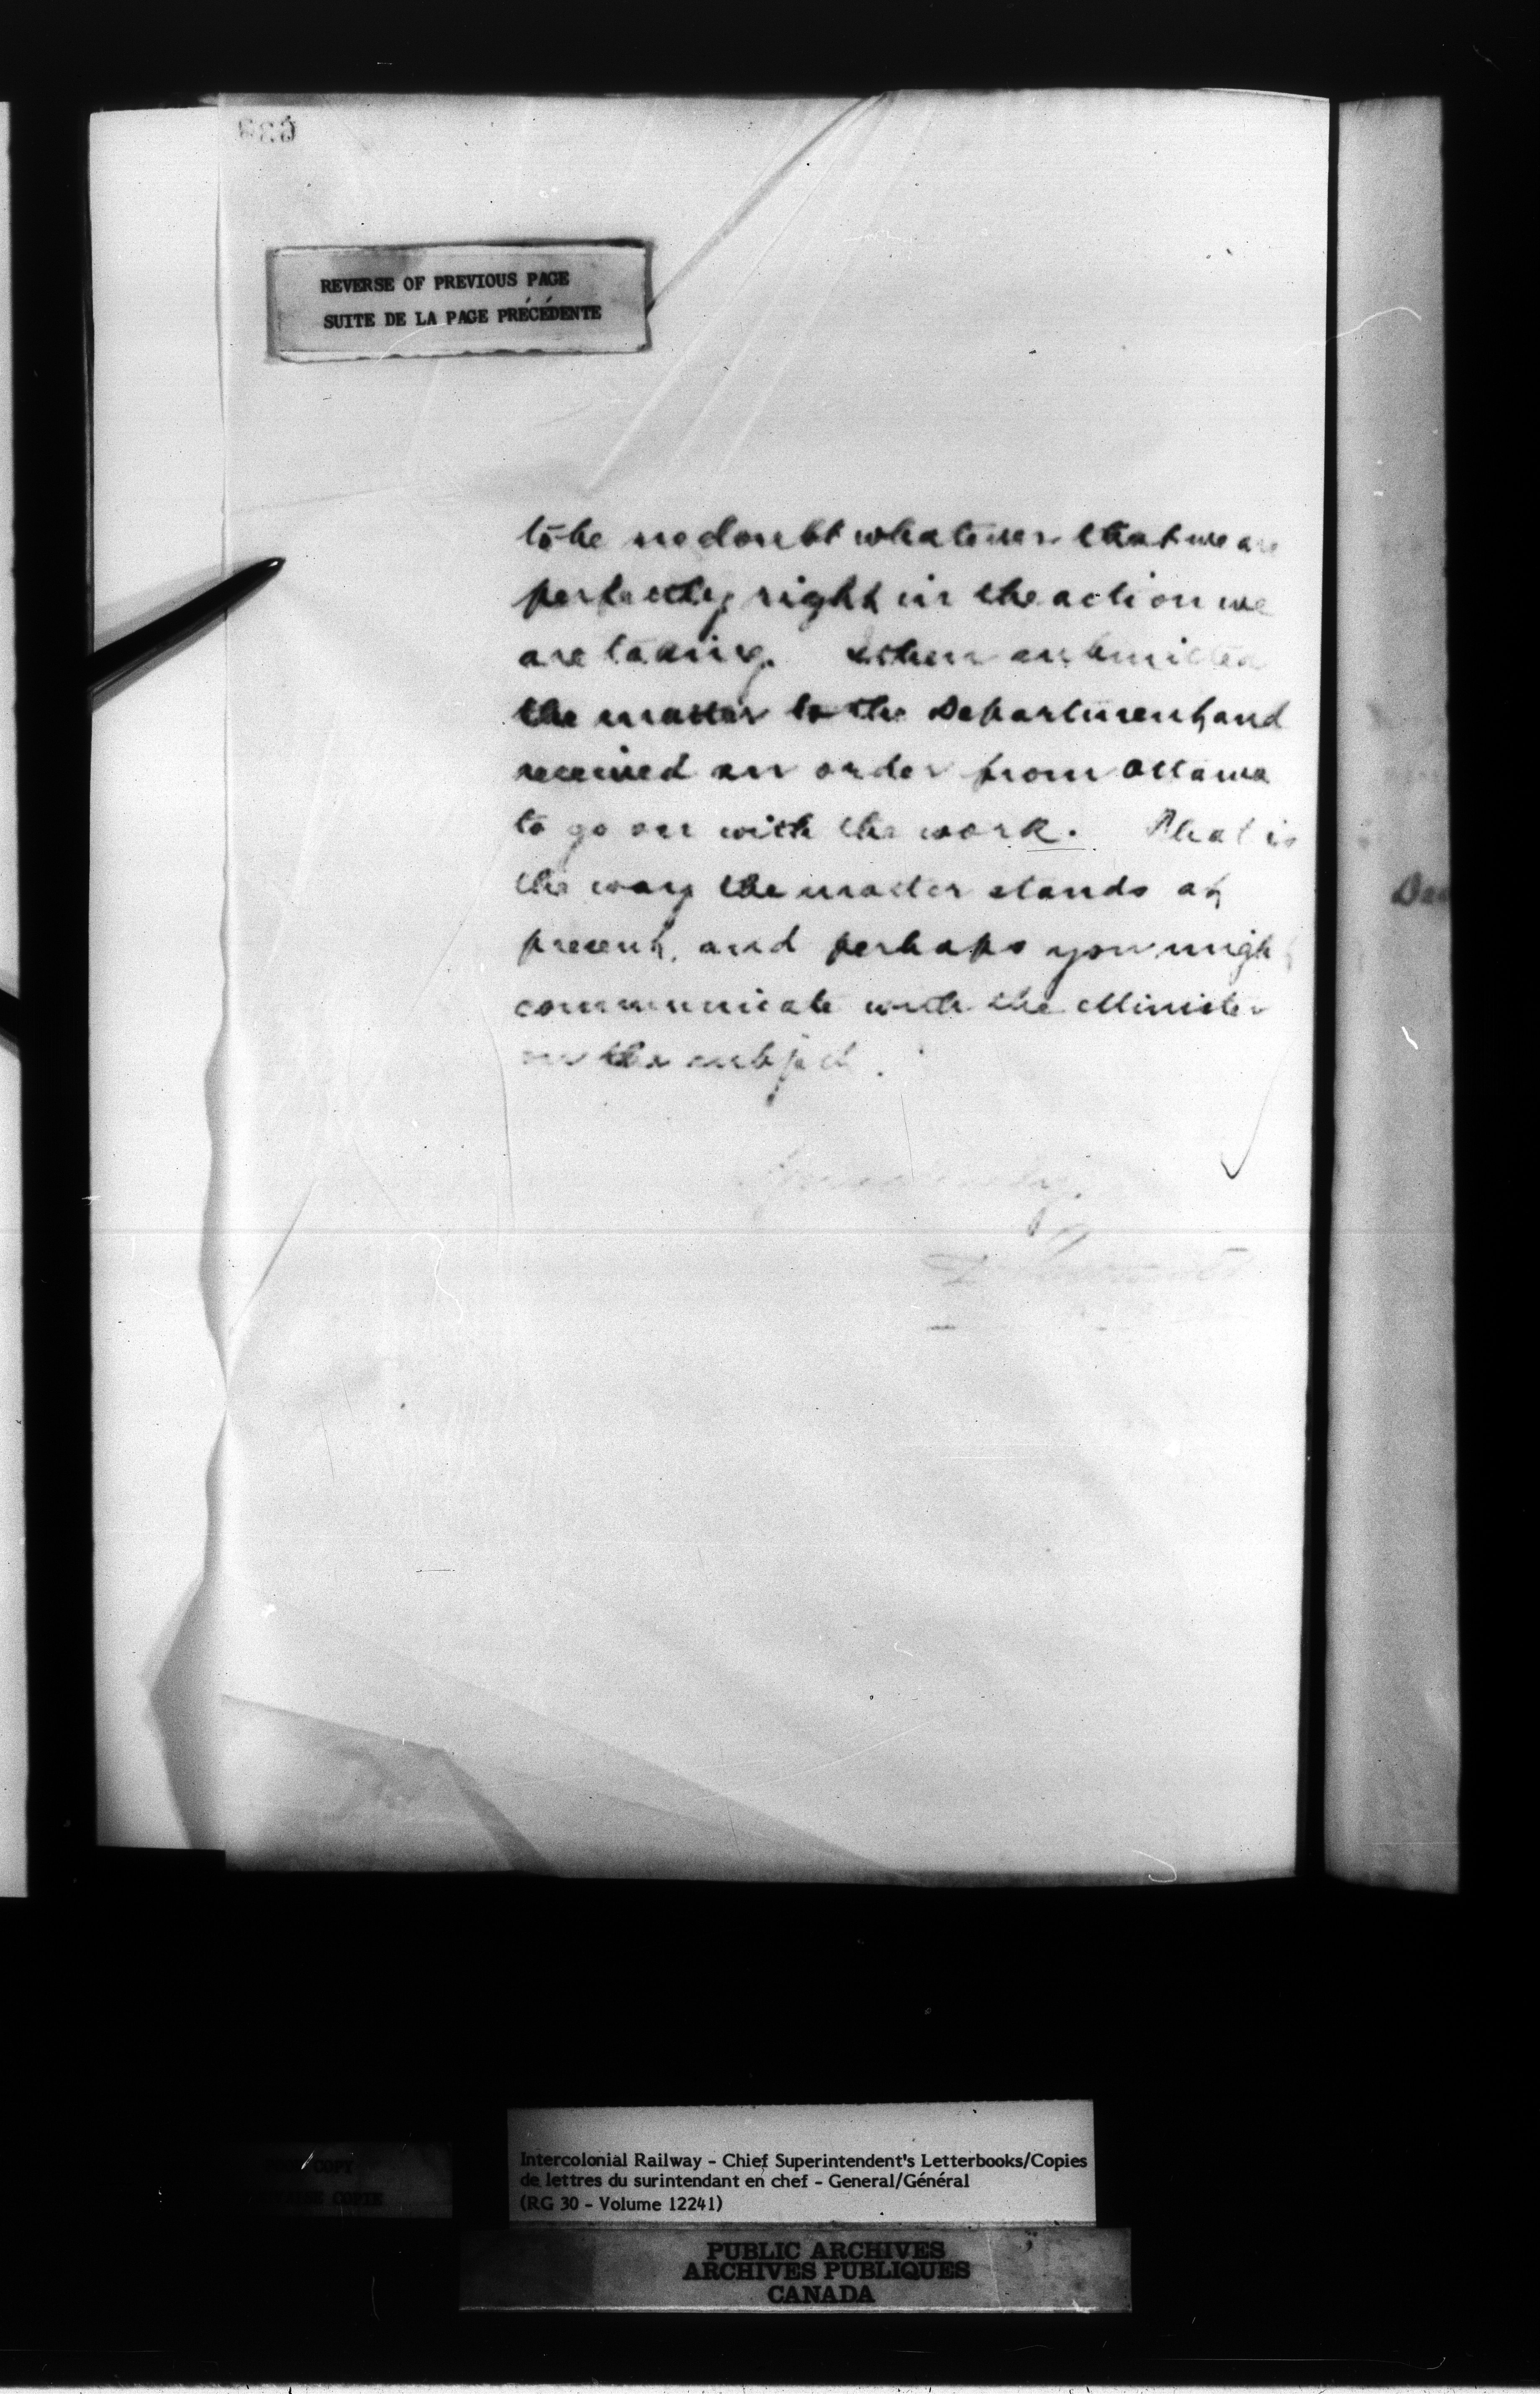 REVERSE OF PREVIOUS PAGE
SUITE DE LA PAGE PRÉCÉDENTE
to be no doubt whatever that we are
perfectly right in the action we
are taking. I then submitted
the matter to the Department and
received an order from Ottawa
to go on with the work. That is
the way the matter stands at
present, and perhaps you might
communicate with the Minister
on the subject.
Yours truly,
D
Intercolonial Railway - Chief Superintendent's Letterbooks/Copies
de lettres du surintendant en chef - General/Général
(RG 30 - Volume 12241)
PUBLIC ARCHIVES
ARCHIVES PUBLIQUES
CANADA